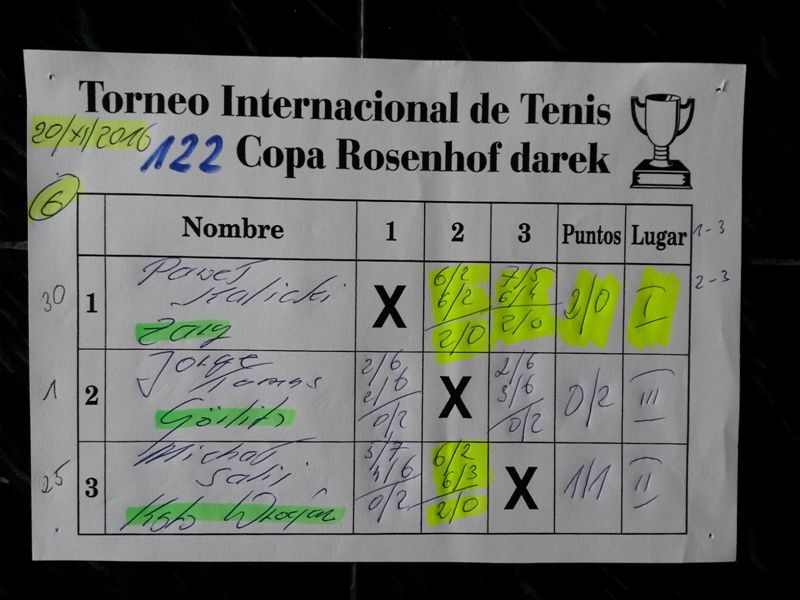 Torneo Internacional de Tenis
20/XI/2016 122 Copa Rosenhof darek
6
Nombre 1 2 3 Puntos Lugar 1-3
2-3
30 1 Paweł Skalicki Żary X 6/2 6/2 2/0 7/5 6/4 2/0 2/0 I
1 2 Jorge Tomas Görlitz 2/6 2/6 0/2 X 2/6 3/6 0/2 0/2 III
25 3 Michał 5/7 4/6 0/2 6/2 6/3 2/0 X 1/1 II